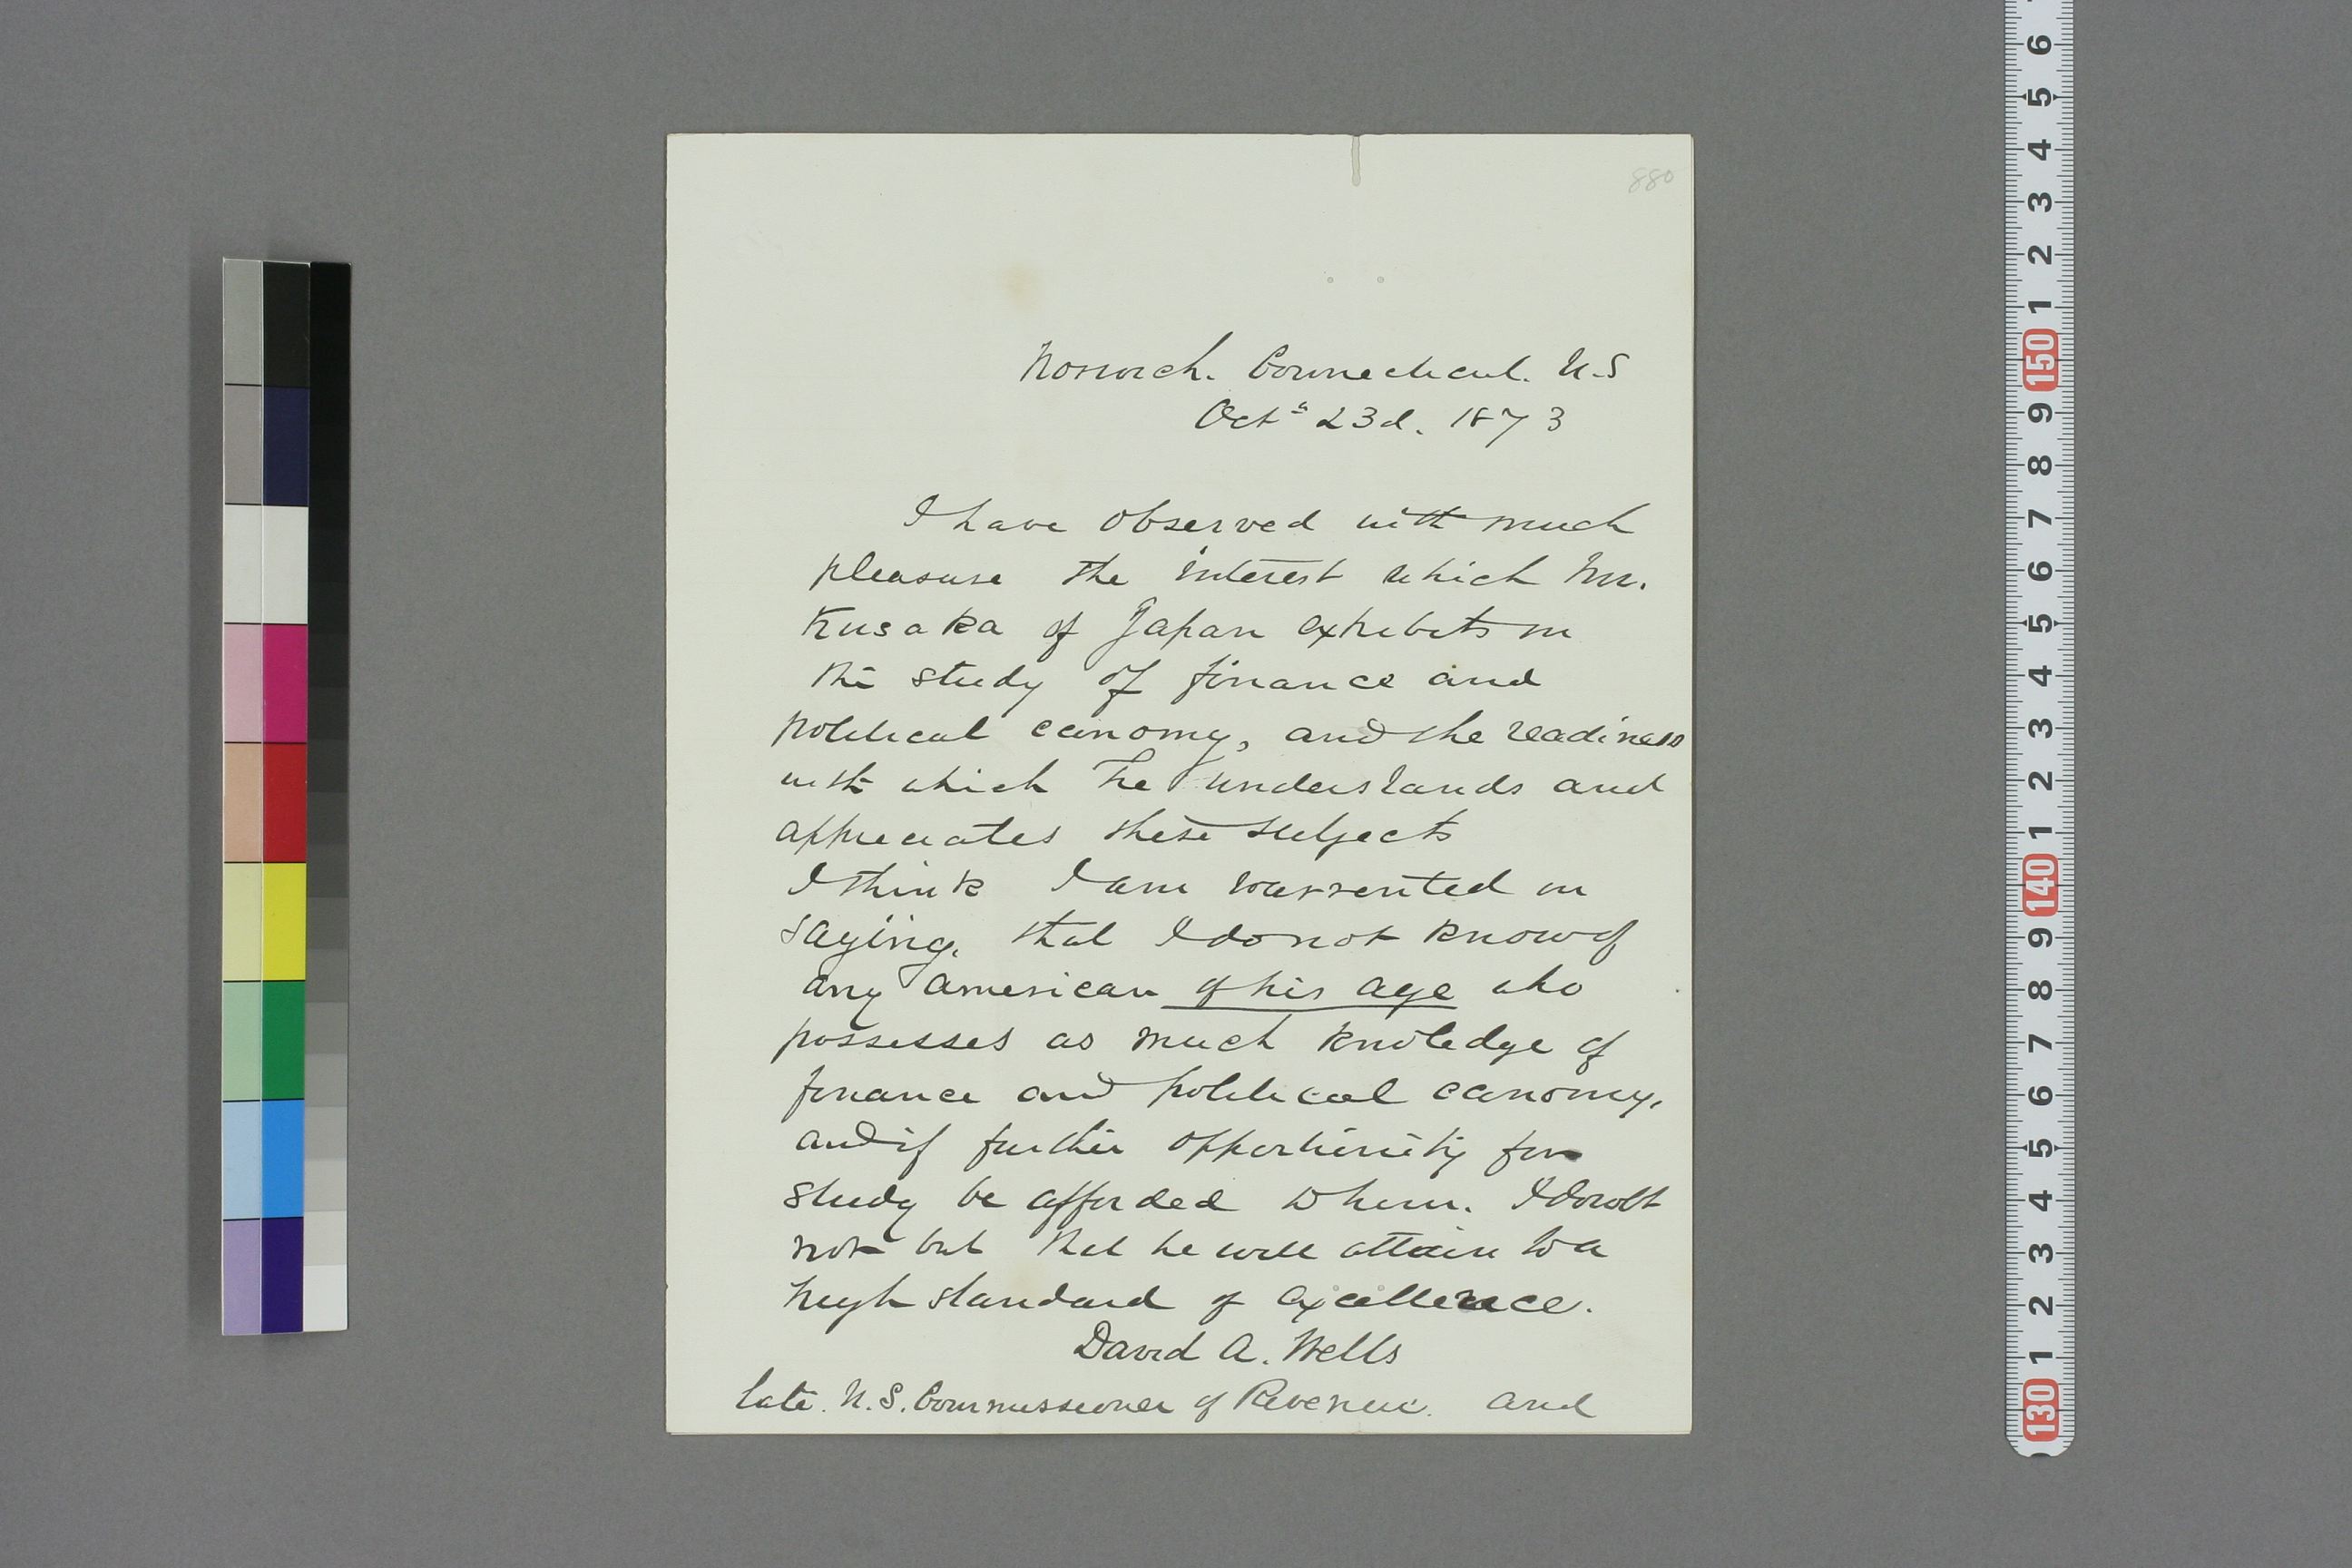 880
Norwich. Connecticut. U.S
Oct" 23d. 1873
I have observed with much
pleasure the interest which Mr.
Kusaka of Japan exhibits in
the study of finance and
political economy, and the readiness
with which he understands and
appreciates these subjects
I think I am warrented in
saying, that I do not know of
any American of his age who
possesses as much knowledge of
finance and political economy,
and if further opportunity for
study be afforded to him. I doubt
not but that he will attain to a
high standard of excellence.
David A. Wells
late. U.S. Commissioner of Revenue. and
6
5
4
3
2
1
150
9
8
7
6
5
4
3
2
1
140
9
8
7
6
5
4
3
2
1
130